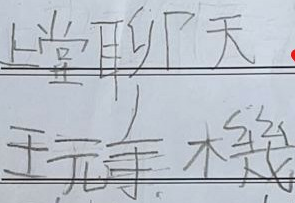 上堂聊天
玩手機